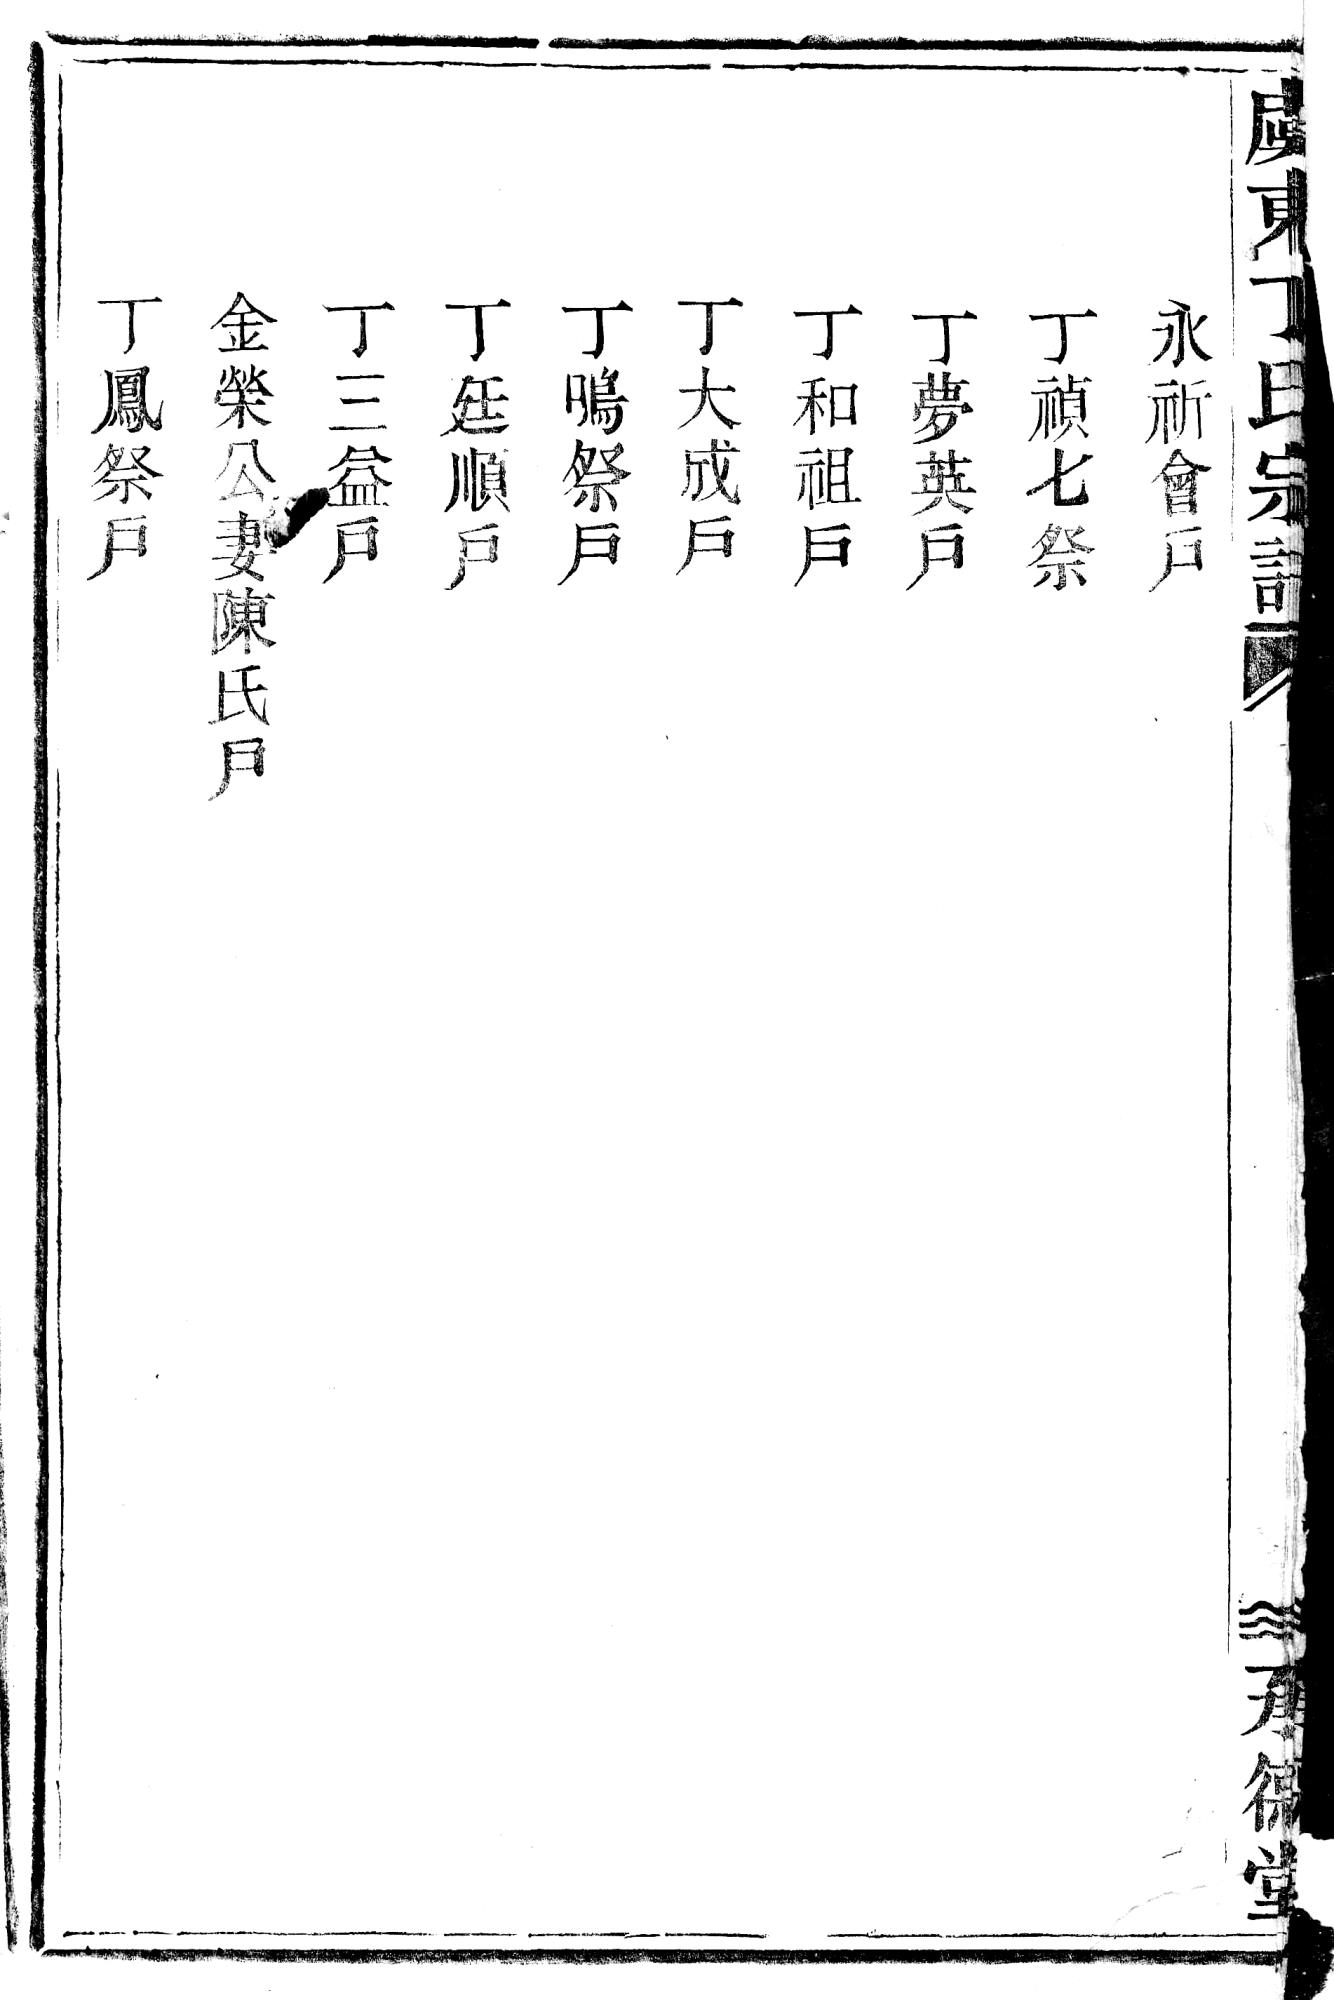 東丁氏宗譜
承德堂
永祈會戶
丁禎七祭
丁夢英戶
丁和祖戶
丁大成戶
丁鳴祭戶
丁廷順戶
丁三益戶
金榮公妻陳氏戶
丁鳳祭戶